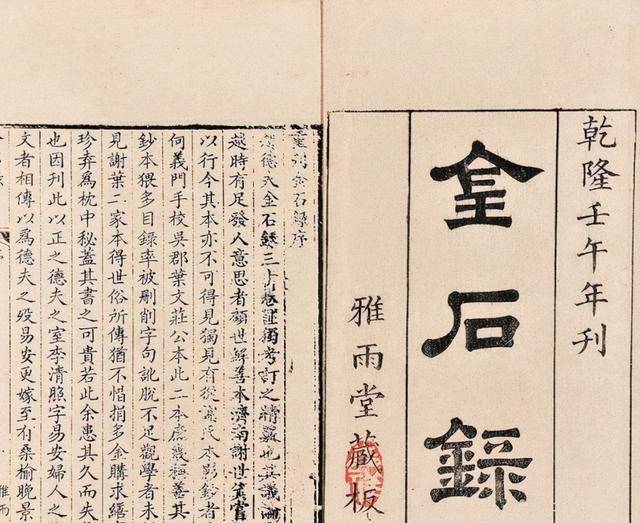 乾隆壬午年刊
金石錄
雅雨堂藏板
重刋金石錄序
趙德夫金石錄三十卷匪獨考訂之精覈也其議
越時有足發人意思者顧世鮮善本濟南謝世箕嘗
以行今其本亦不可得見獨見有從謝氏本影鈔者
何義門手校吳郡葉文莊公本此二本庶幾稱善其
鈔本猥多目錄率被刪削字句訛脫不足觀學者未
見謝葉二家本得世俗所傳猶不惜捐多金購求繕
珍弆爲枕中秘蓋其書之可貴若此余患其久而失
也因刋此以正之德夫之室李清照字易安婦人之
文者相傳以爲德夫之歿易安更嫁至有桑榆晚景
雅雨